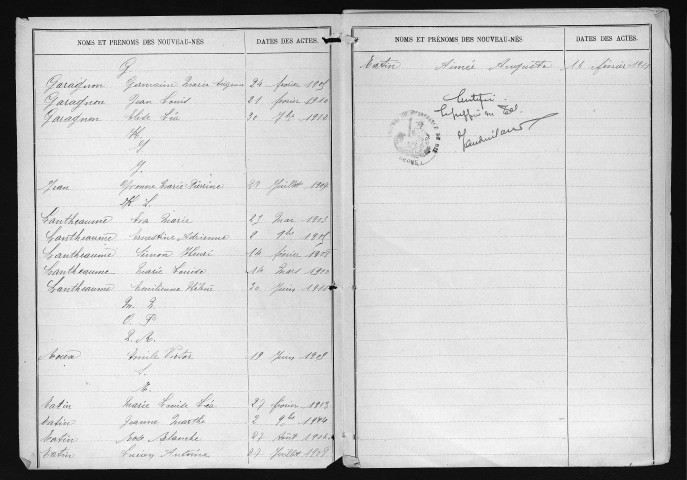 NOMS ET PRÉNOMS DES NOUVEAU-NÉS DATES DES ACTES.
G
Garagnon Germain Marie 24 février
Garagnon Jean Louis 21 février 1910
Garagnon Elise Léa 20 7bre 1910
H.
I
J.
Jean Yvonne Marie Pierrine 29 Juillet 1904
K L.
Lantheaume Eva Marie 23 Mai 1903
Lantheaume Ernestine Adrienne 8 9bre
Lantheaume Simon Henri 14 février
Lantheaume Marie Louise 14 Mars
Lantheaume Emilienne 20 Juin
M. N.
O. P
Q. R.
Emile Victor 19 Juin 1909
S.
T.
Tatin Marie Louise Léa 27 février 1903
Tatin Jeanne Marthe 2 9bre 1904
Tatin Rose Blanche 27 Août
Tatin Lucien Antoine 27 Juillet 1909
NOMS ET PRÉNOMS DES NOUVEAU-NÉS DATES DES ACTES.
Tatin Aimée Augusta 14 février
Certifié
Le greffier en